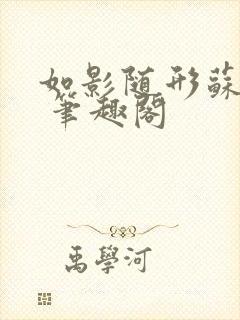 如影随形蘇
筆趣閣
禹學河